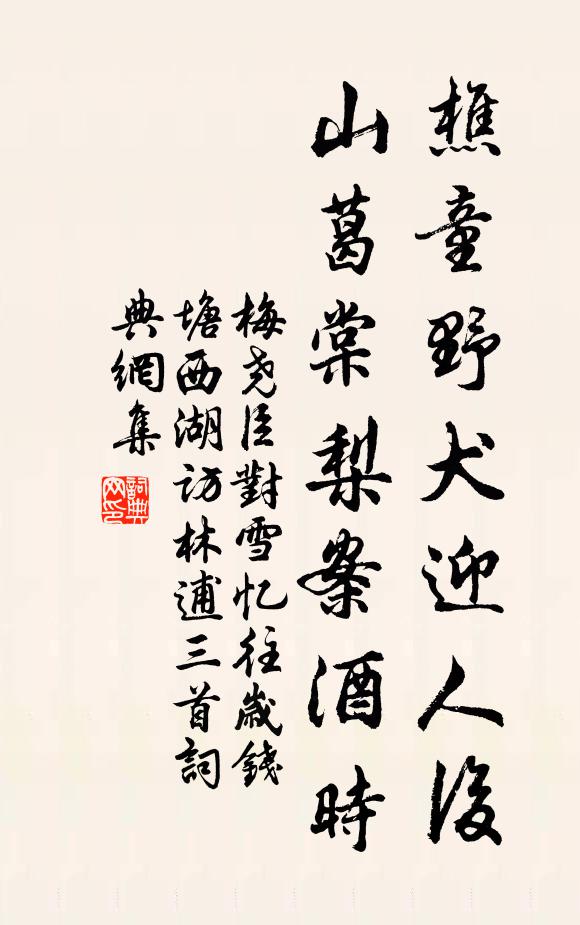 樵童野犬迎人後
山葛棠梨案酒時
梅尧臣對雪忆往歲錢
塘西湖访林逋三首詞
典網集
詞典网印